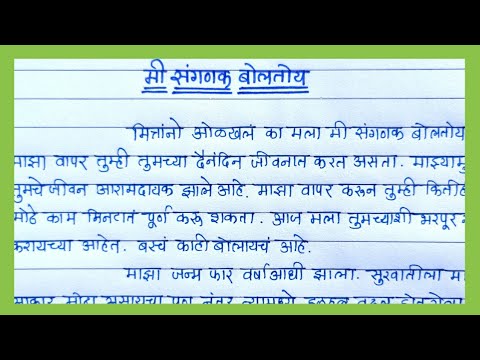 मी संगणक बोलतोय
मित्तांनो ओळखलं का मला मी संगणक बोलतोय
माझा वापर तुम्ही तुमच्या दैनंदिन जीवनात करत असता. माझ्यामु
तुमचे जीवन आरामदायक झाले आहे. माझा वापर करून तुम्ही कितीह
मोठे काम मिनटात पूर्ण करू शकता. आज मला तुमच्याशी भरपूर
करायच्या आहेत. बस्चं काही बोलायचं आहे.
माझा जन्म फार वर्षाआधी झाला. सुरवातीला